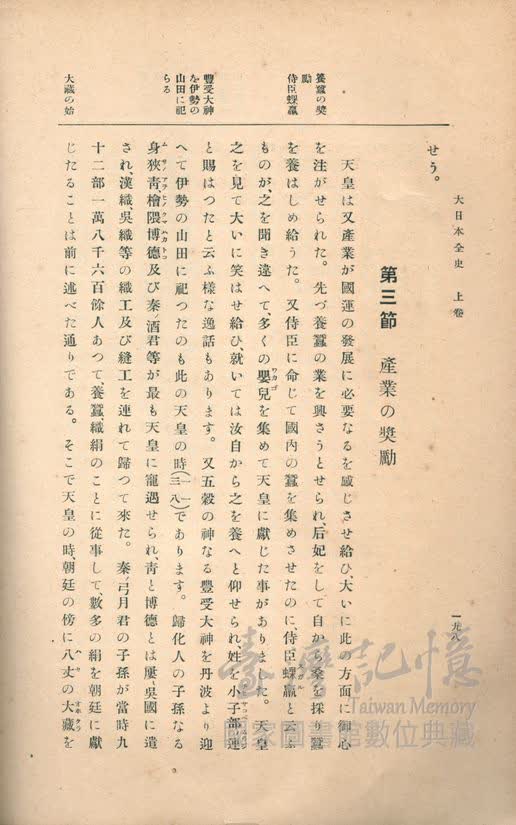 大日本全史　上卷
一九八
養蠶の奬
勵
侍臣蜾蠃
豐受大神
を伊勢の
山田に祀
らる
大藏の始
せう。
第三節　產業の奬勵
天皇は又產業が國運の發展に必要なるを感じさせ給ひ、大いに此の方面に御心
を注がせられた。先づ養蠶の業を興さうとせられ、后妃をして自から桑を採り蠶
を養はしめ給うた。又侍臣に命じて國內の蠶を集めさせたのに、侍臣蜾蠃と云ふ
ものが、之を聞き違へて、多くの嬰兒を集めて天皇に獻じた事がありました。天皇
之を見て大いに笑はせ給ひ、就いては汝自から之を養へと仰せられ姓を小子部連
と賜はつたと云ふ樣な逸話もあります。又五穀の神なる豐受大神を丹波より迎
へて伊勢の山田に祀つたのも此の天皇の時(一一三八)であります。歸化人の子孫なる
身狹靑、檜隈博德及び秦ノ酒君等が最も天皇に寵遇せられ、靑と博德とは屢〻吳國に遣
され、漢織、吳織等の織工及び縫工を連れて歸つて來た。秦ノ弓月君の子孫が當時九
十二部一萬八千六百餘人あつて、養蠶、織絹のことに從事して、數多の絹を朝廷に獻
じたることは前に述べた通りである。そこで天皇の時、朝廷の傍に八丈の大藏を
臺灣記憶
Taiwan Memory
國家圖書館數位典藏